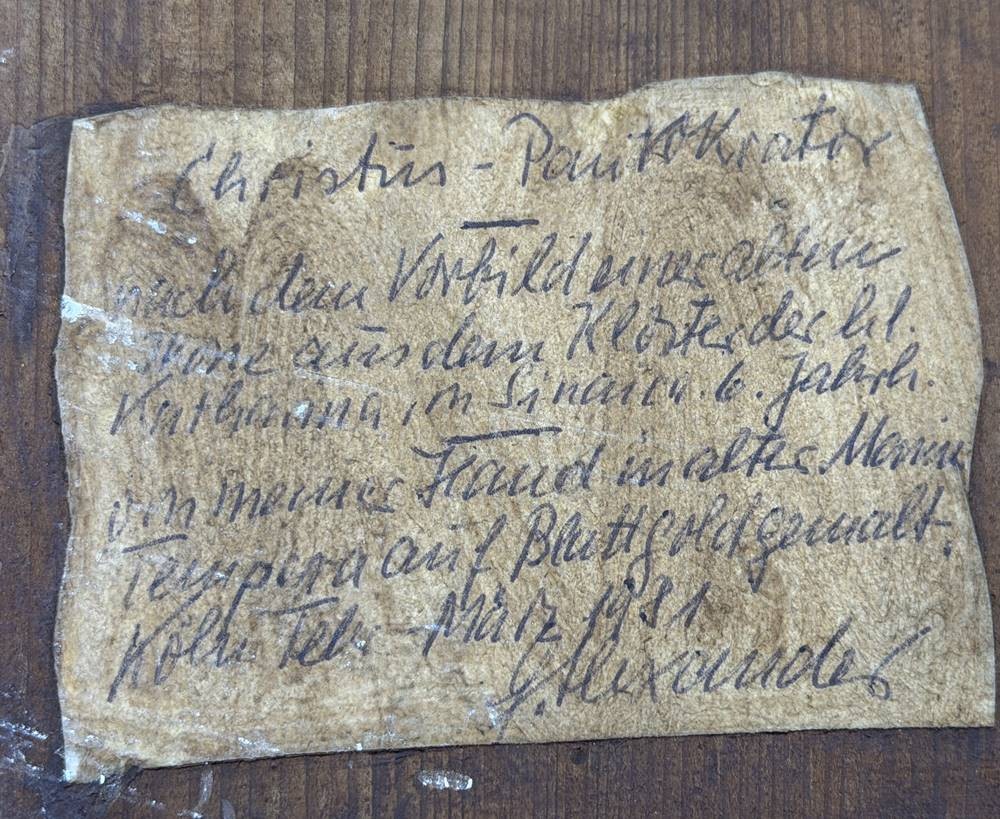 Christus - Pantokrator
nach dem Vorbild einer alten
Ikone aus dem Kloster der hl.
Katharina im Sinai a. 6. Jahrh.
von meiner Hand in alter Manier
Tempera auf Blattgold gemalt.
Köln Feb. - März 1981
G. Alexander